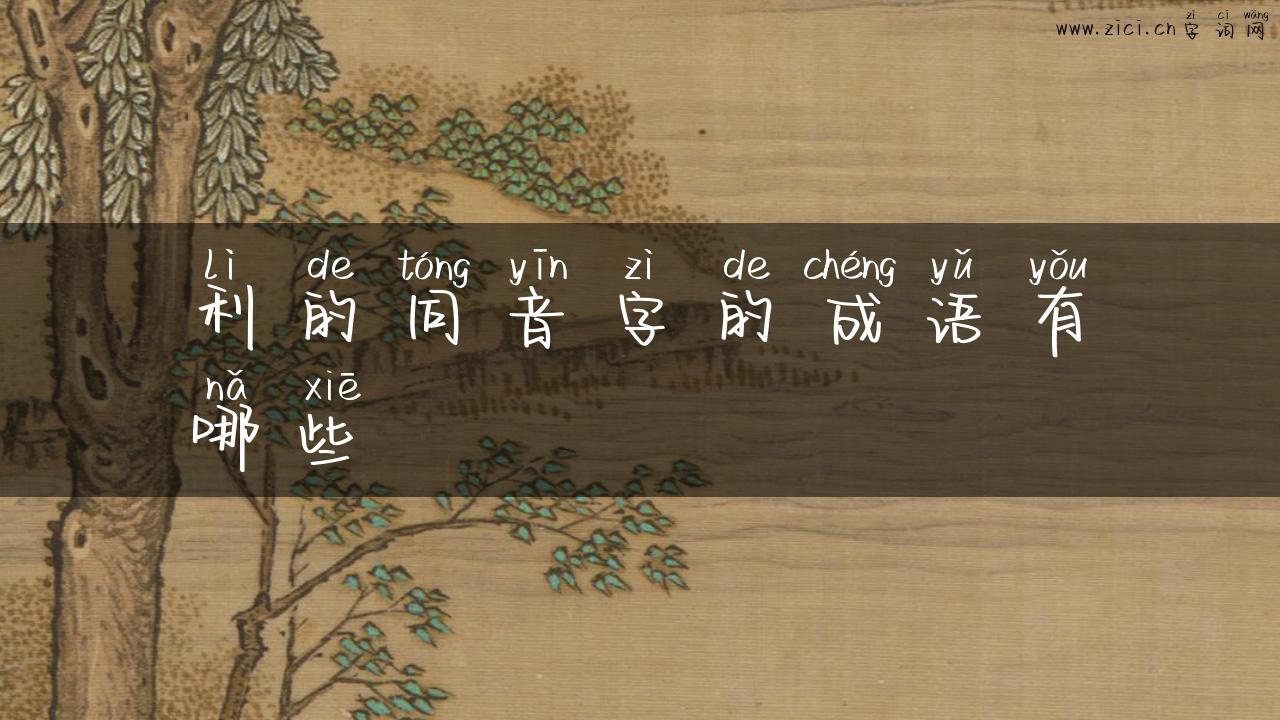 zì cí wǎng
www.zici.cn 字 词 网
lì de tóng yīn zì de chéng yǔ yǒu
利 的 同 音 字 的 成 语 有
nǎ xiē
哪 些